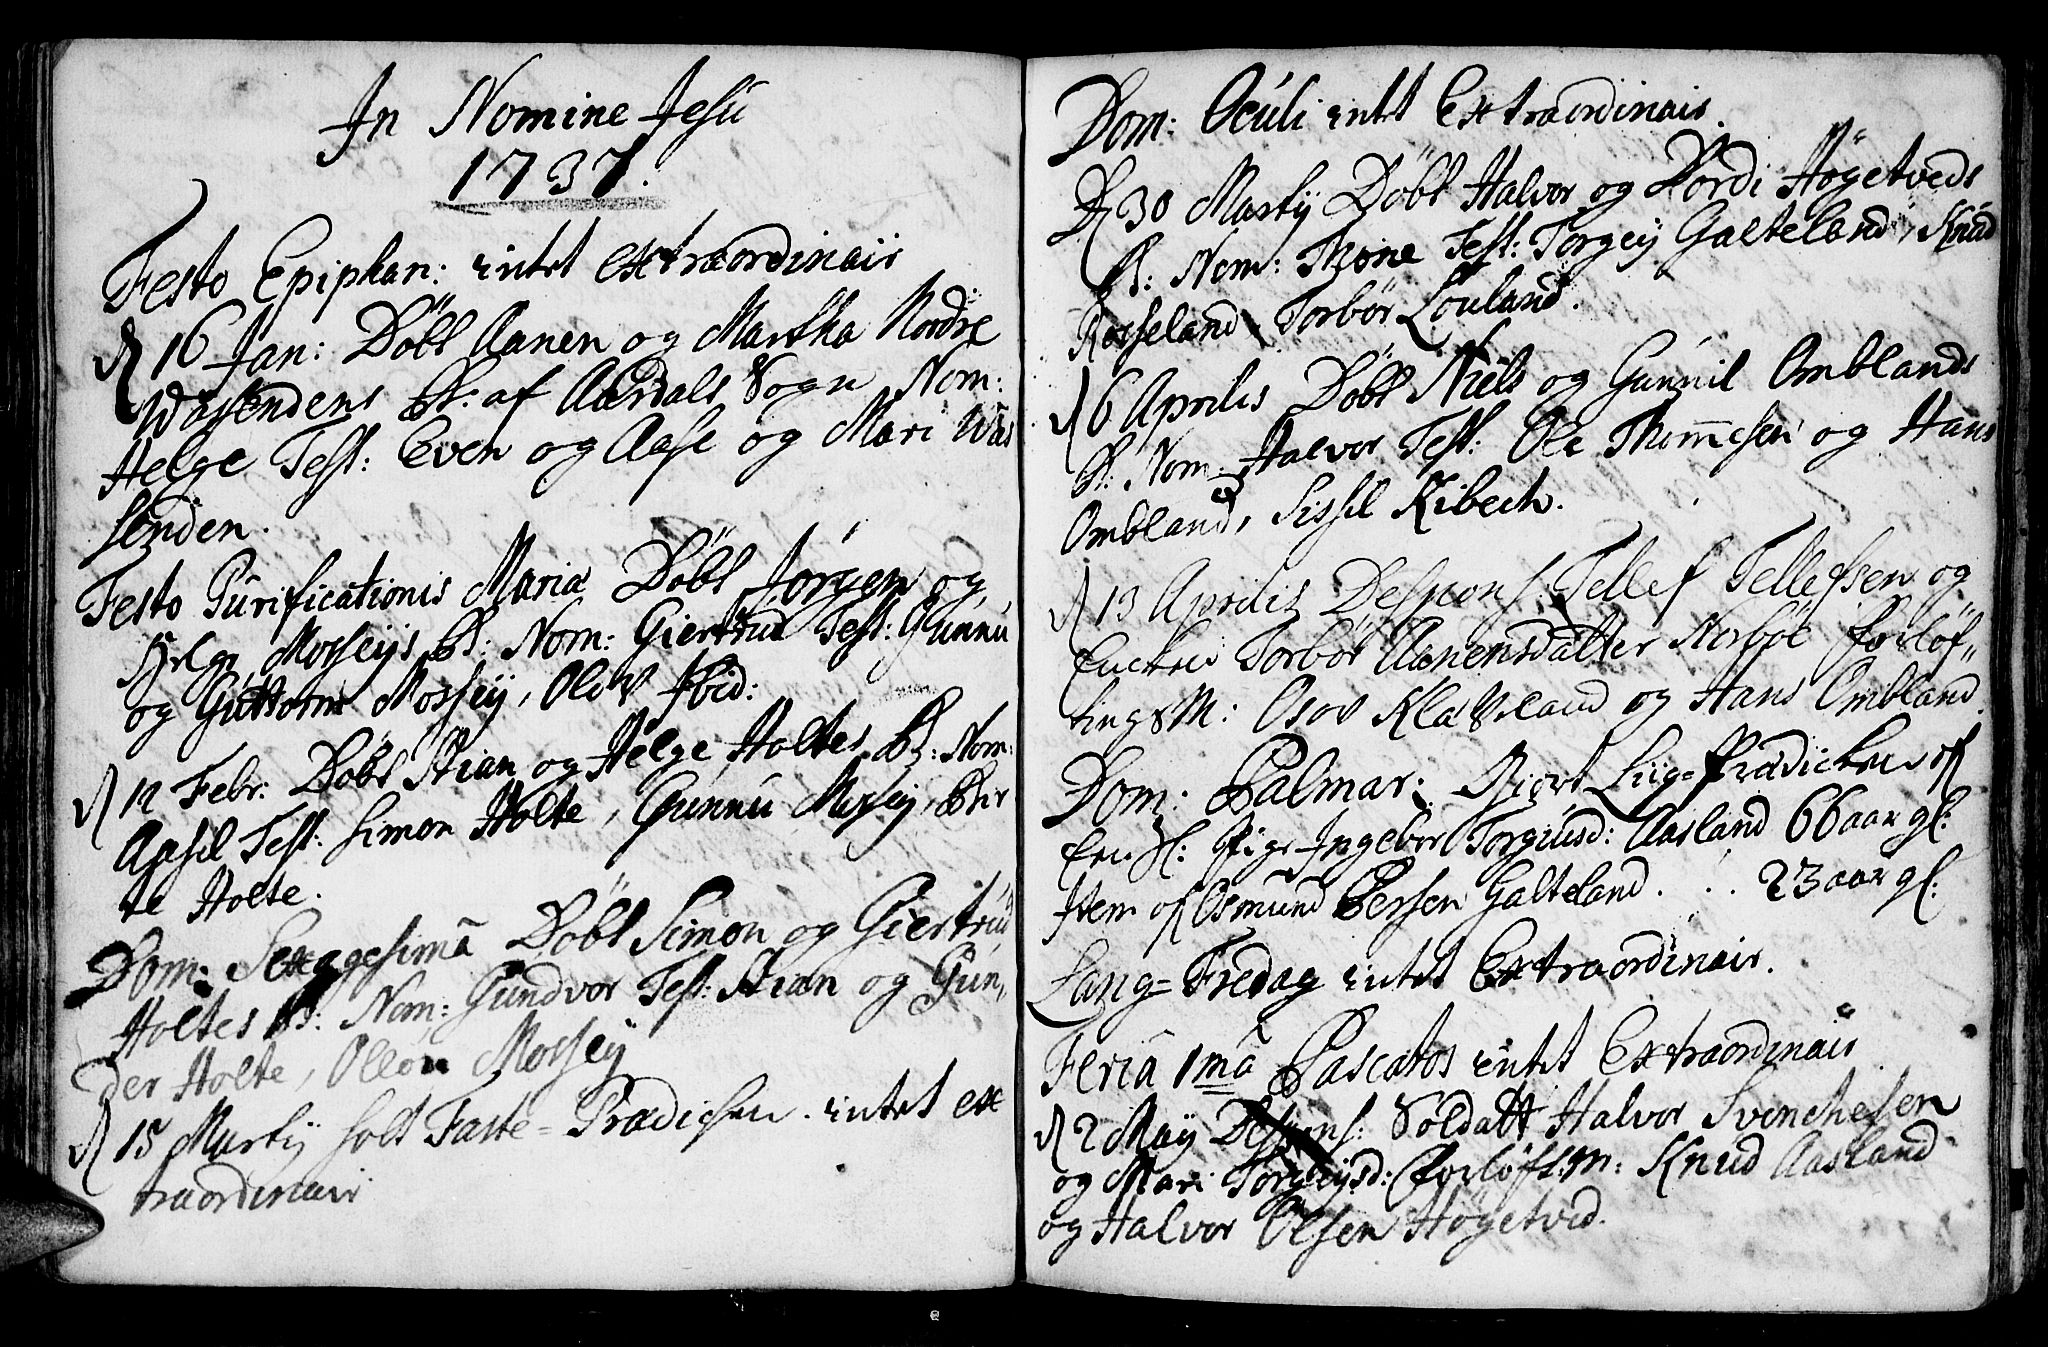 In Nomine Jesu
1737.
Festo Epiphan: intet extraordinair
d 16 Jan: Döbt Aanen og Martha Nordre
Wassendens B: af Aardals Sogn Nom:
Helge Test: Even og Aase og Mari Was
senden.
Festo Purificationis Maria Döbt Jörgen og
Helge Mosseys B: Nom: Giertrud Test: Gunnu
og Guttorm Mossey, Olov Ibid:
d 12 Febr: Döbt Stian og Helge Holtes B: Nom:
Aasil Test: Simon Holte, Gunnu Mossey, Bir
te Holte.
Dom: Sexagesima Döbt Simon og Giertrud
Holtes B: Nom: Gundvor Test: Stian og Gun,
der Holte, Olléu Mossey
d 15 Marty holt Faste=Prædicken intet ex
traordinair
Dom: Oculi intet Extraordinair.
D 30 Marty Döbt Halvor og Dordi Högetveds
B: Nom: Thone Test: Torgey Galteland, Knud
Rosseland, Torbör Louland.
d 6 Aprilis Döbt Niels og Gunnil Omblands
B: Nom: Halvor Test: Ole Thommesen og Hans
Ombland, Sissil Kibech.
d 13 Aprilis Despons. Tellef Tellefsen og
Encken Torbör Aanensdatter Norböe forlöf„
tings M: Osov Klaveland og Hans Ombland.
Dom: Palmar: Gjort Liig=Prædicken of
Pige Ingebor Torgiusd: Aasland 66 aar gl:
Item of Osmund Persen Galteland . . . 23 aar gl:
Lang=Fredag intet Extraordinair.
Feria 1ma Pascatos intet Extraordinair
d 2 May Despons: Soldatt Halvor Svenchesen
og Mari Torgeysd: forlöfts: M: Knud Aasland
og Halvor Olsen Högetved.